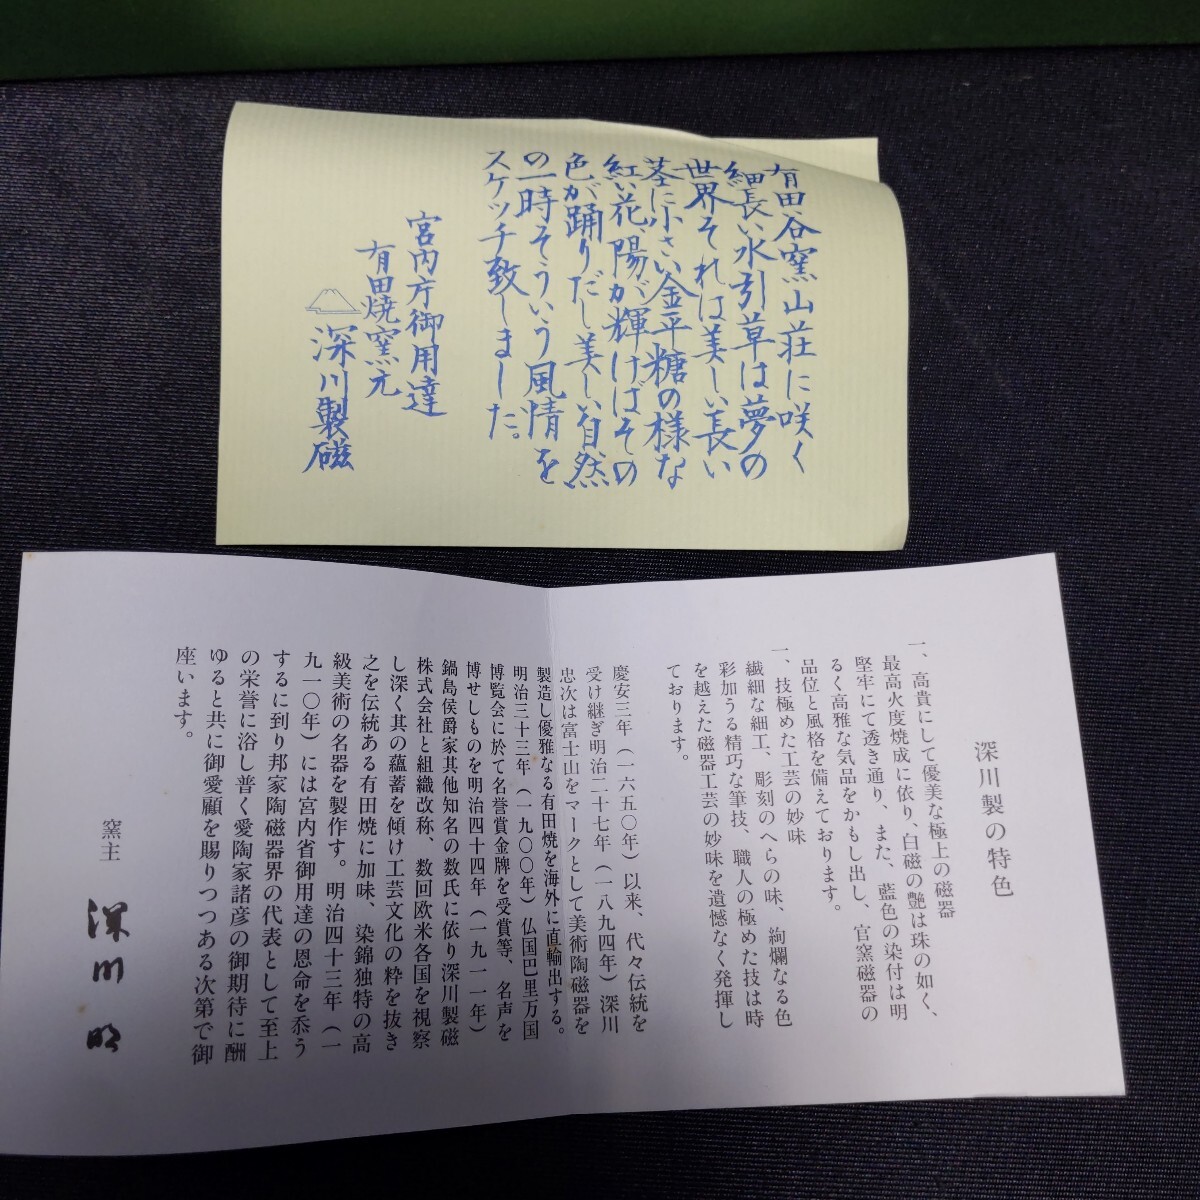 有田谷窯山荘に咲く
細長い水引草は夢の
世界それは美しい長い
茎に小さい金平糖の様な
紅い花、陽が輝けばその
色が踊りだし美しい自然
の一時そういう風情を
スケッチ致しました。
宮内庁御用達
有田焼窯元
深川製磁
深川製の特色
一、高貴にして優美な極上の磁器
最高火度焼成に依り、白磁の艶は珠の如く、
堅牢にて透き通り、また、藍色の染付は明
るく高雅な気品をかもし出し、官窯磁器の
品位と風格を備えております。
一、技極めた工芸の妙味
繊細な細工、彫刻のへらの味、絢爛なる色
彩加うる精巧な筆技、職人の極めた技は時
を越えた磁器工芸の妙味を遺憾なく発揮し
ております。
慶安三年（一六五〇年）以来、代々伝統を
受け継ぎ明治二十七年（一八九四年）深川
忠次は富士山をマークとして美術陶磁器を
製造し優雅なる有田焼を海外に直輸出する。
明治三十三年（一九〇〇年）仏国巴里万国
博覧会に於て名誉賞金牌を受賞等、名声を
博せしものを明治四十四年（一九一一年）
鍋島侯爵家其他知名の数氏に依り深川製磁
株式会社と組織改称、数回欧米各国を視察
し深く其の蘊蓄を傾け工芸文化の粋を抜き
之を伝統ある有田焼に加味、染錦独特の高
級美術の名器を製作す。明治四十三年（一
九一〇年）には宮内省御用達の恩命を忝う
するに到り邦家陶磁器界の代表として至上
の栄誉に浴し普く愛陶家諸彦の御期待に酬
ゆると共に御愛顧を賜りつつある次第で御
座います。
窯主 深川明